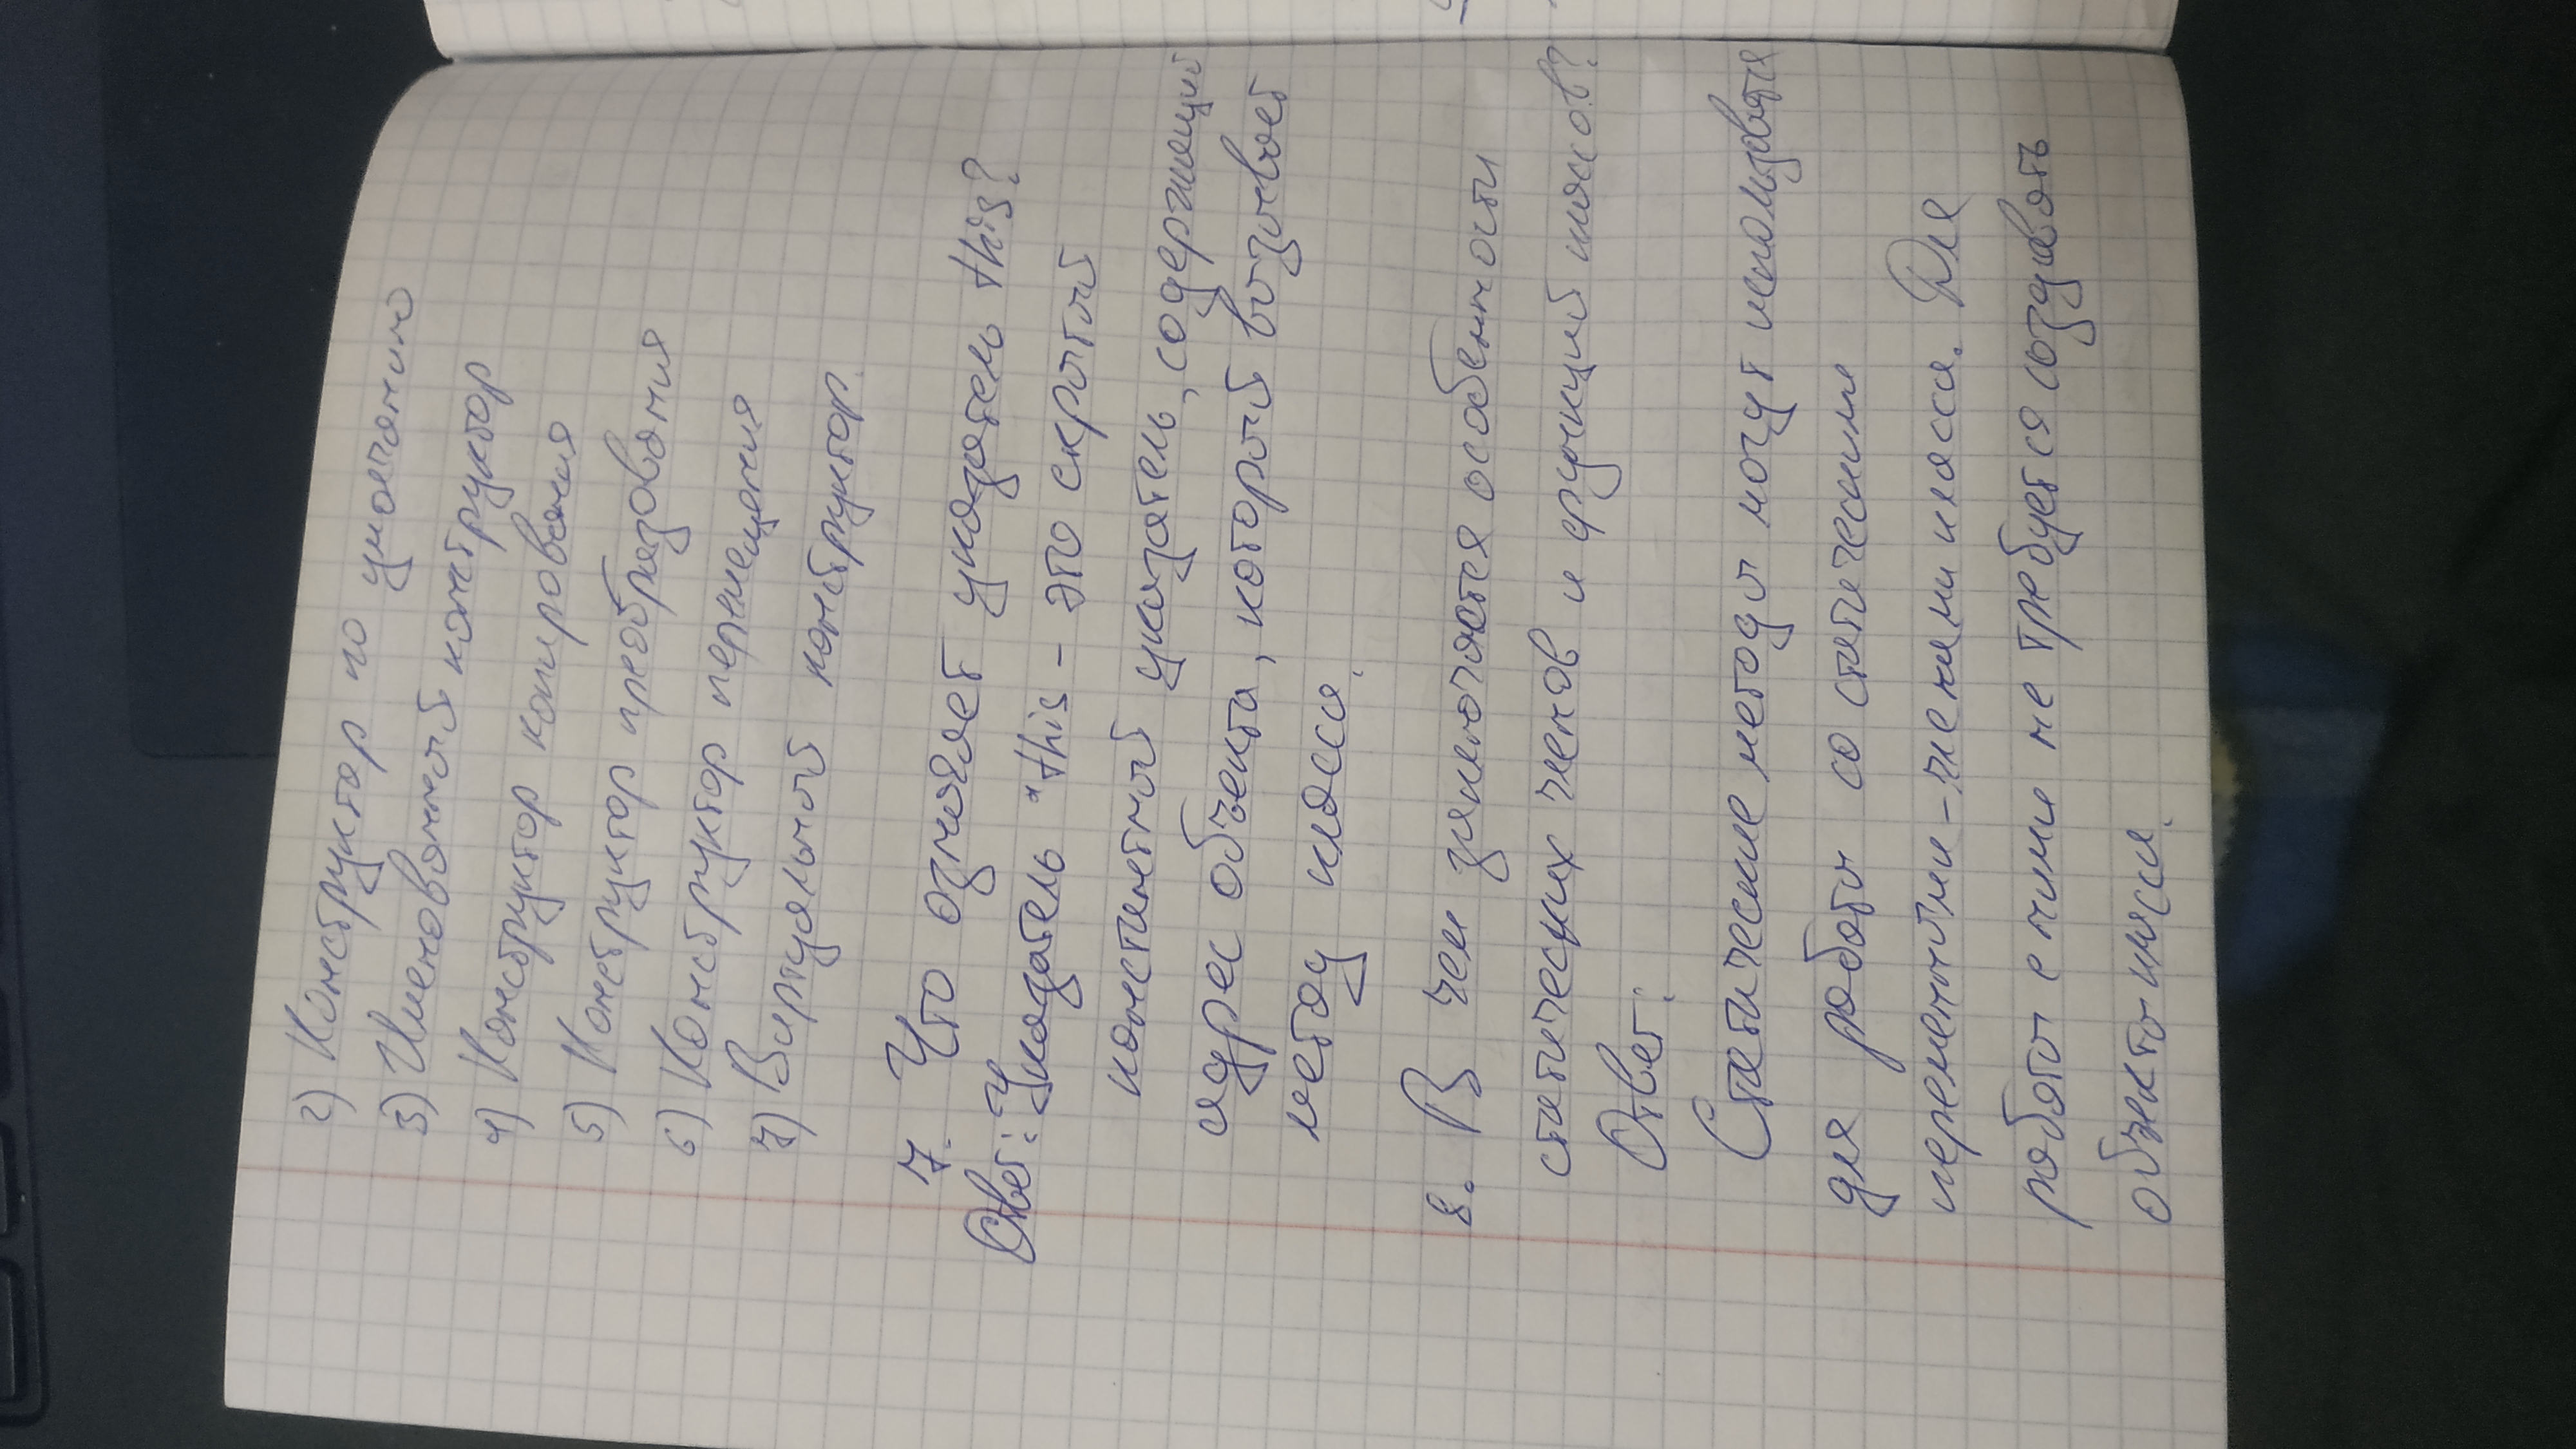 2) Конструктор по умолчанию
3) Именованный конструктор
4) Конструктор копирования
5) Конструктор преобразования
6) Конструктор перемещения
7) Виртуальный конструктор.
7. Что означает указатель this?
Ответ: Указатель *this – это скрытый
константный указатель, содержащий
адрес объекта, который вызывает
метод класса.
8. В чем заключается особенности
статических членов и функций классов?
Ответ:
Статические методы могут использоватся
для работы со статическими
переменными-членами класса. Для
работы с ними не требуется создавать
объекты класса.